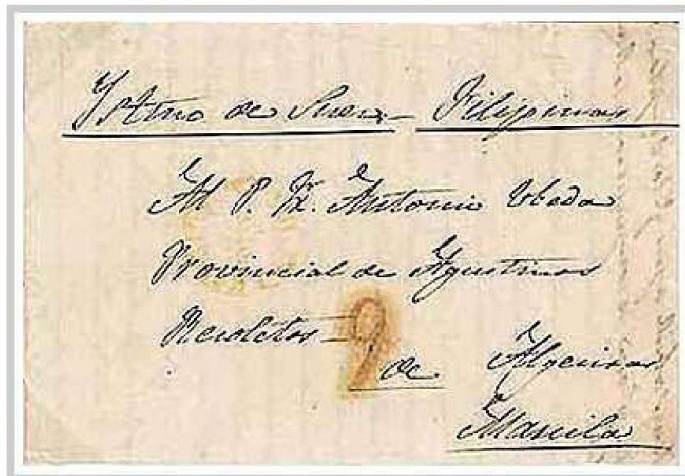 Ystmo de Suez - Filipinas
Al P. Fr. Antonio Ubeda
Provincial de Agustinos
Recoletos -
2
de Algeciras
Manila